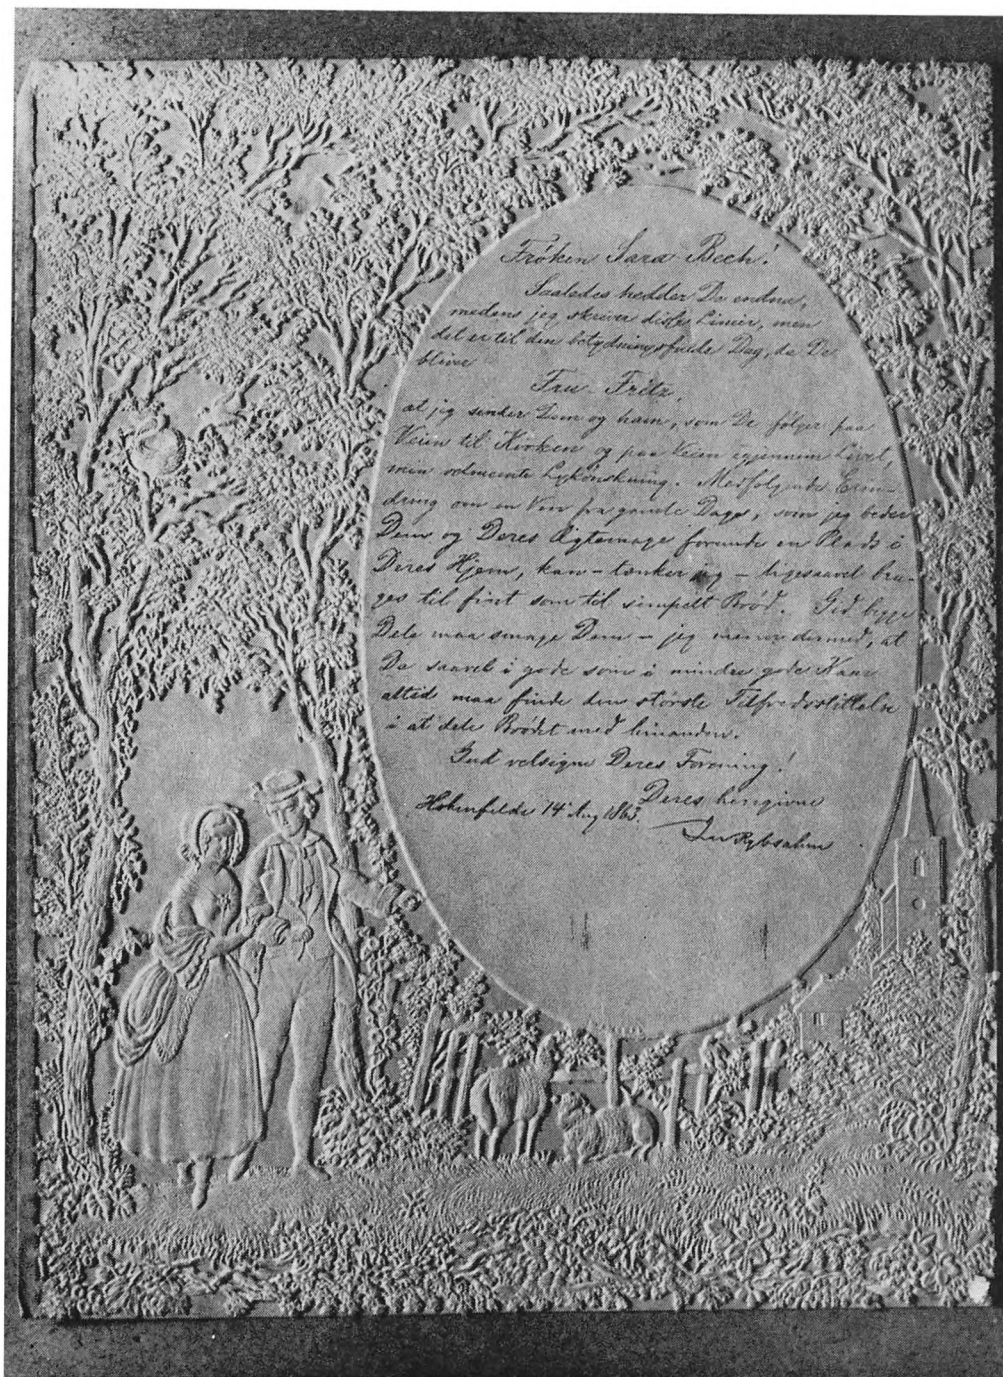 Frøken Sara Bech!
Saaledes hedder De endnu,
medens jeg skriver disse Linier, men
det er til den betydningsfulde Dag, da De
bliver
Fru Fritz,
at jeg sender Dem og ham, som De følger paa
Veien til Kirken og paa Veien igjennem Livet,
min velmeente Lykønskning. Medfølgende Erin-
dring om en Ven fra gamle Dage, som jeg beder
Dem og Deres Ægtemage forunde en Plads i
Deres Hjem, kan – tænker jeg – ligesaavel bru-
ges til fint som til simpelt Brød. Gid begge
Dele maa smage Dem – jeg mener dermed, at
De saavel i gode som i mindre gode Kaar
altid maa finde den største Tilfredsstillelse
i at dele Brødet med hinanden.
Gud velsigne Deres Forening!
Deres hengivne
Hohenfelde 14 Aug 1863.